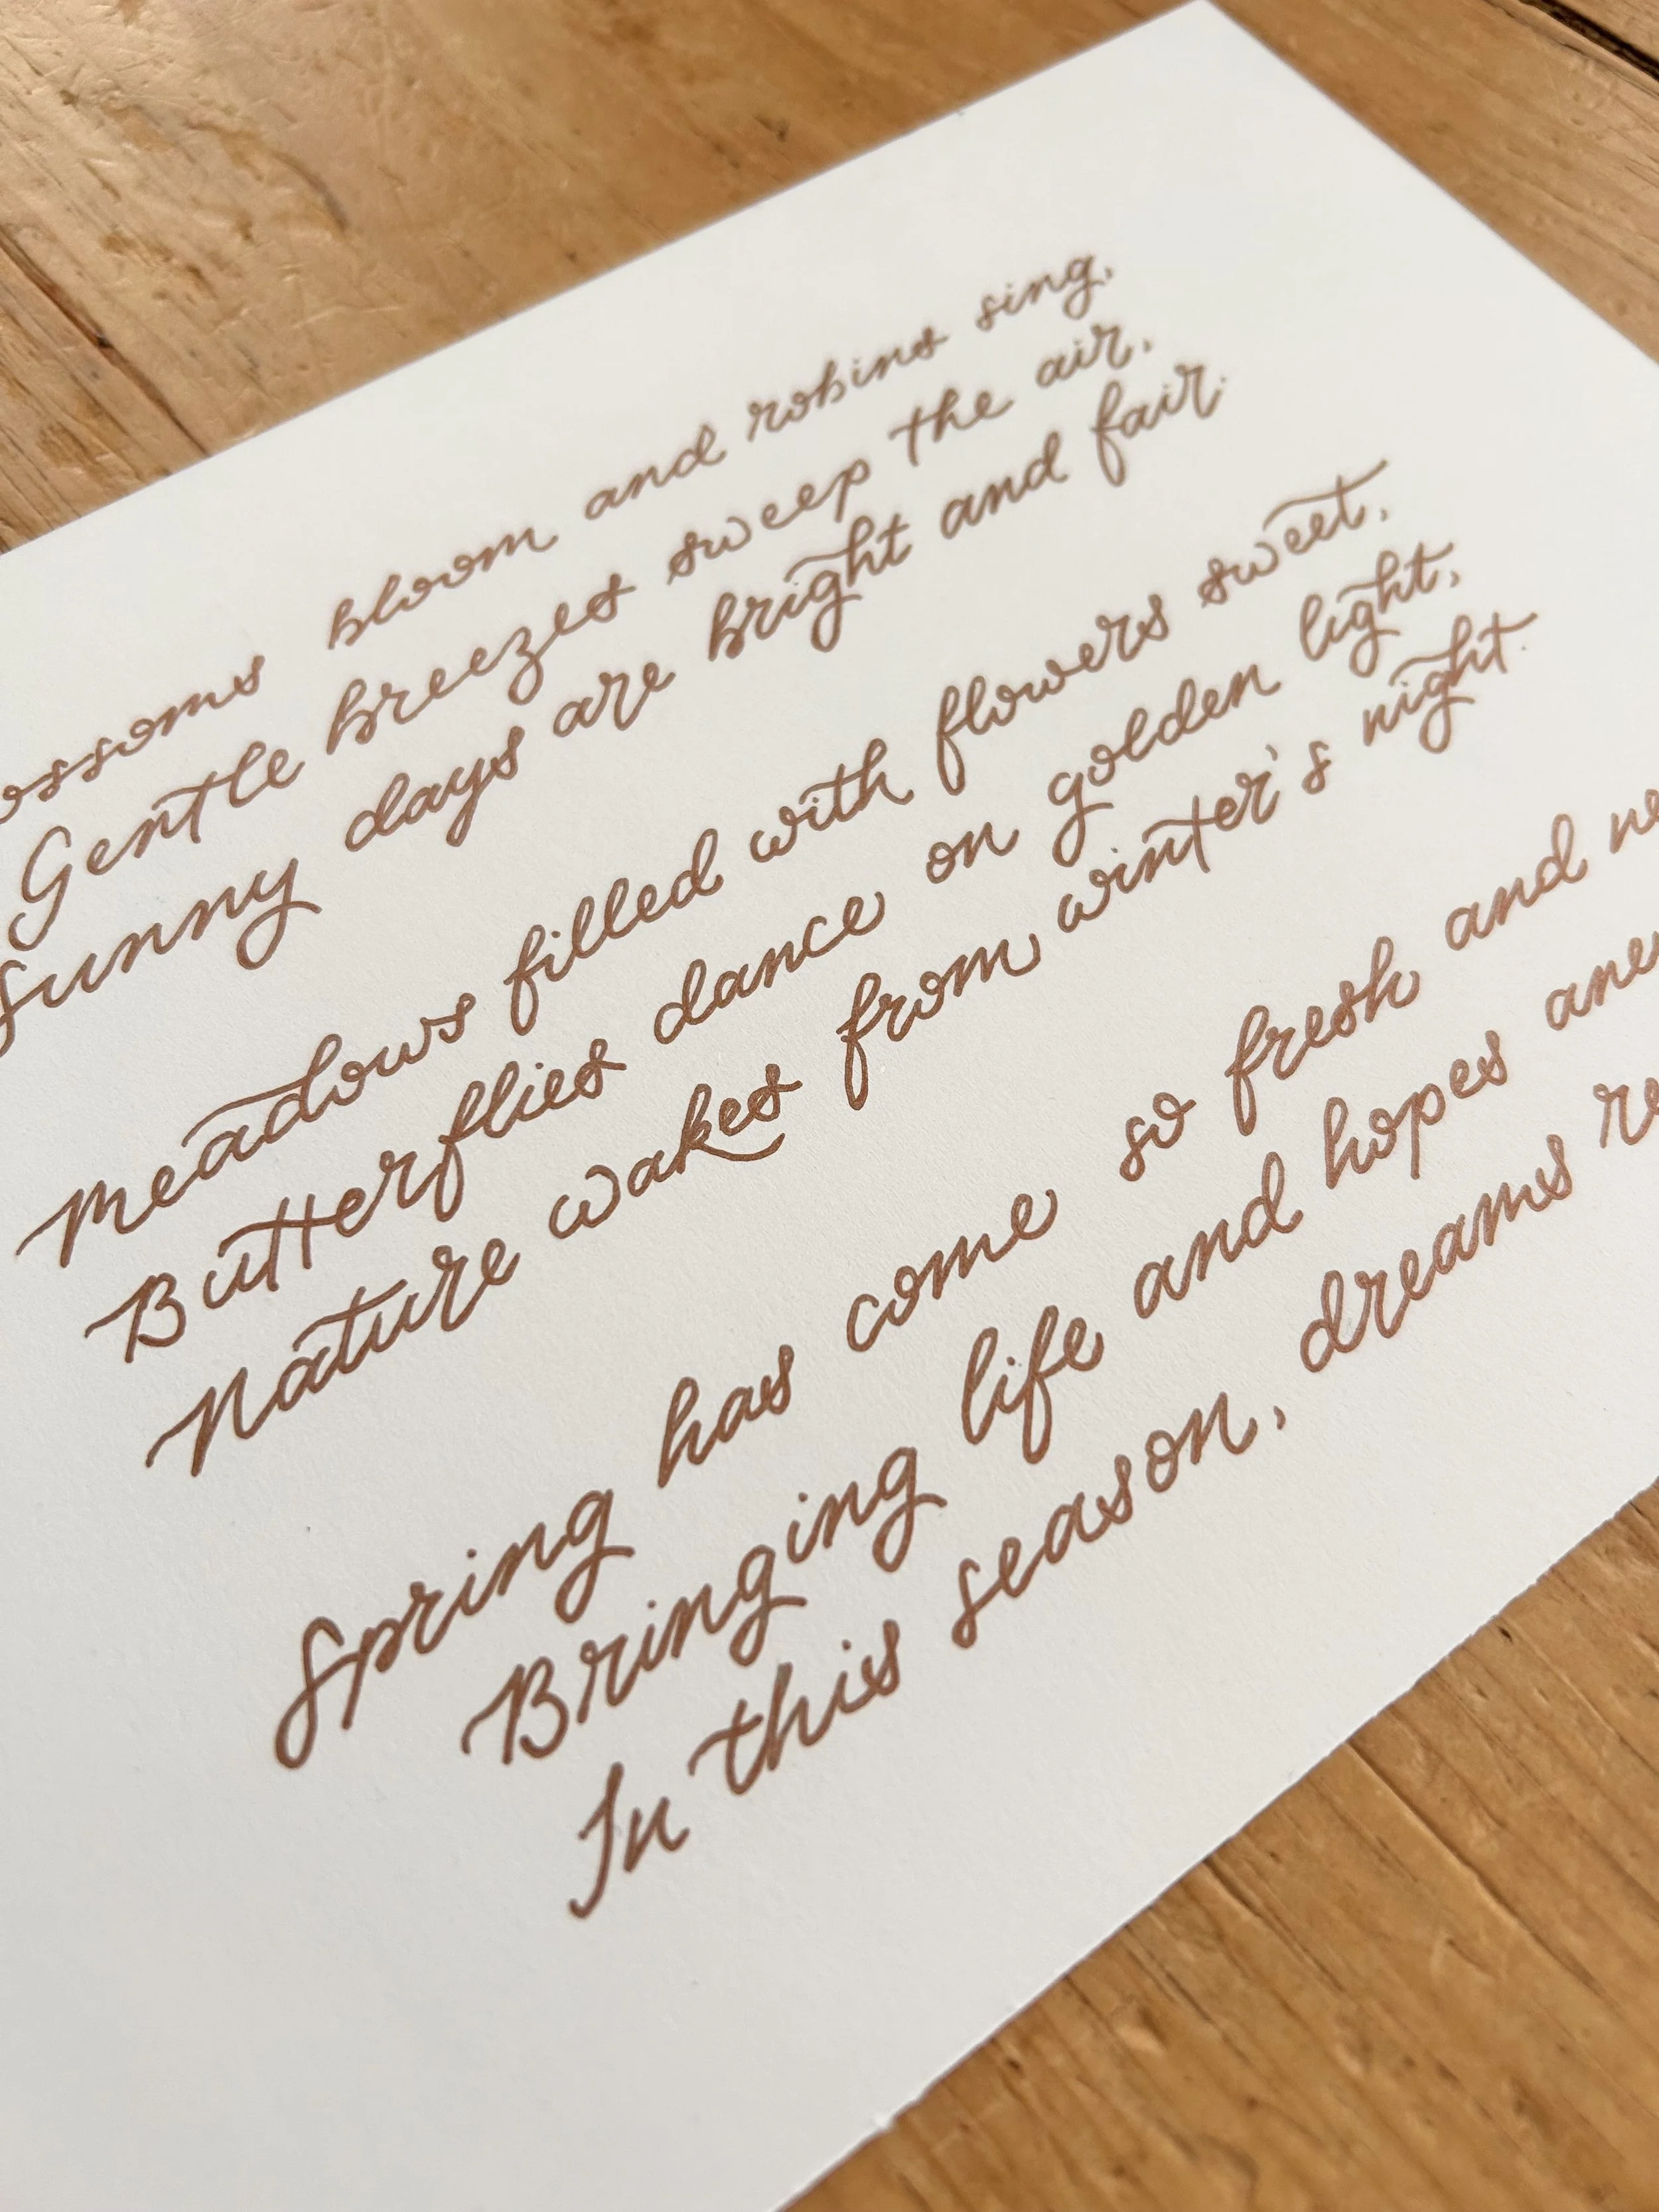 bloom and robins sing,
Gentle breezes sweep the air,
Sunny days are bright and fair.
Meadows filled with flowers sweet,
Butterflies dance on golden light,
Nature wakes from winter's night.
Spring has come so fresh and
Bringing life and hopes
In this season, dreams